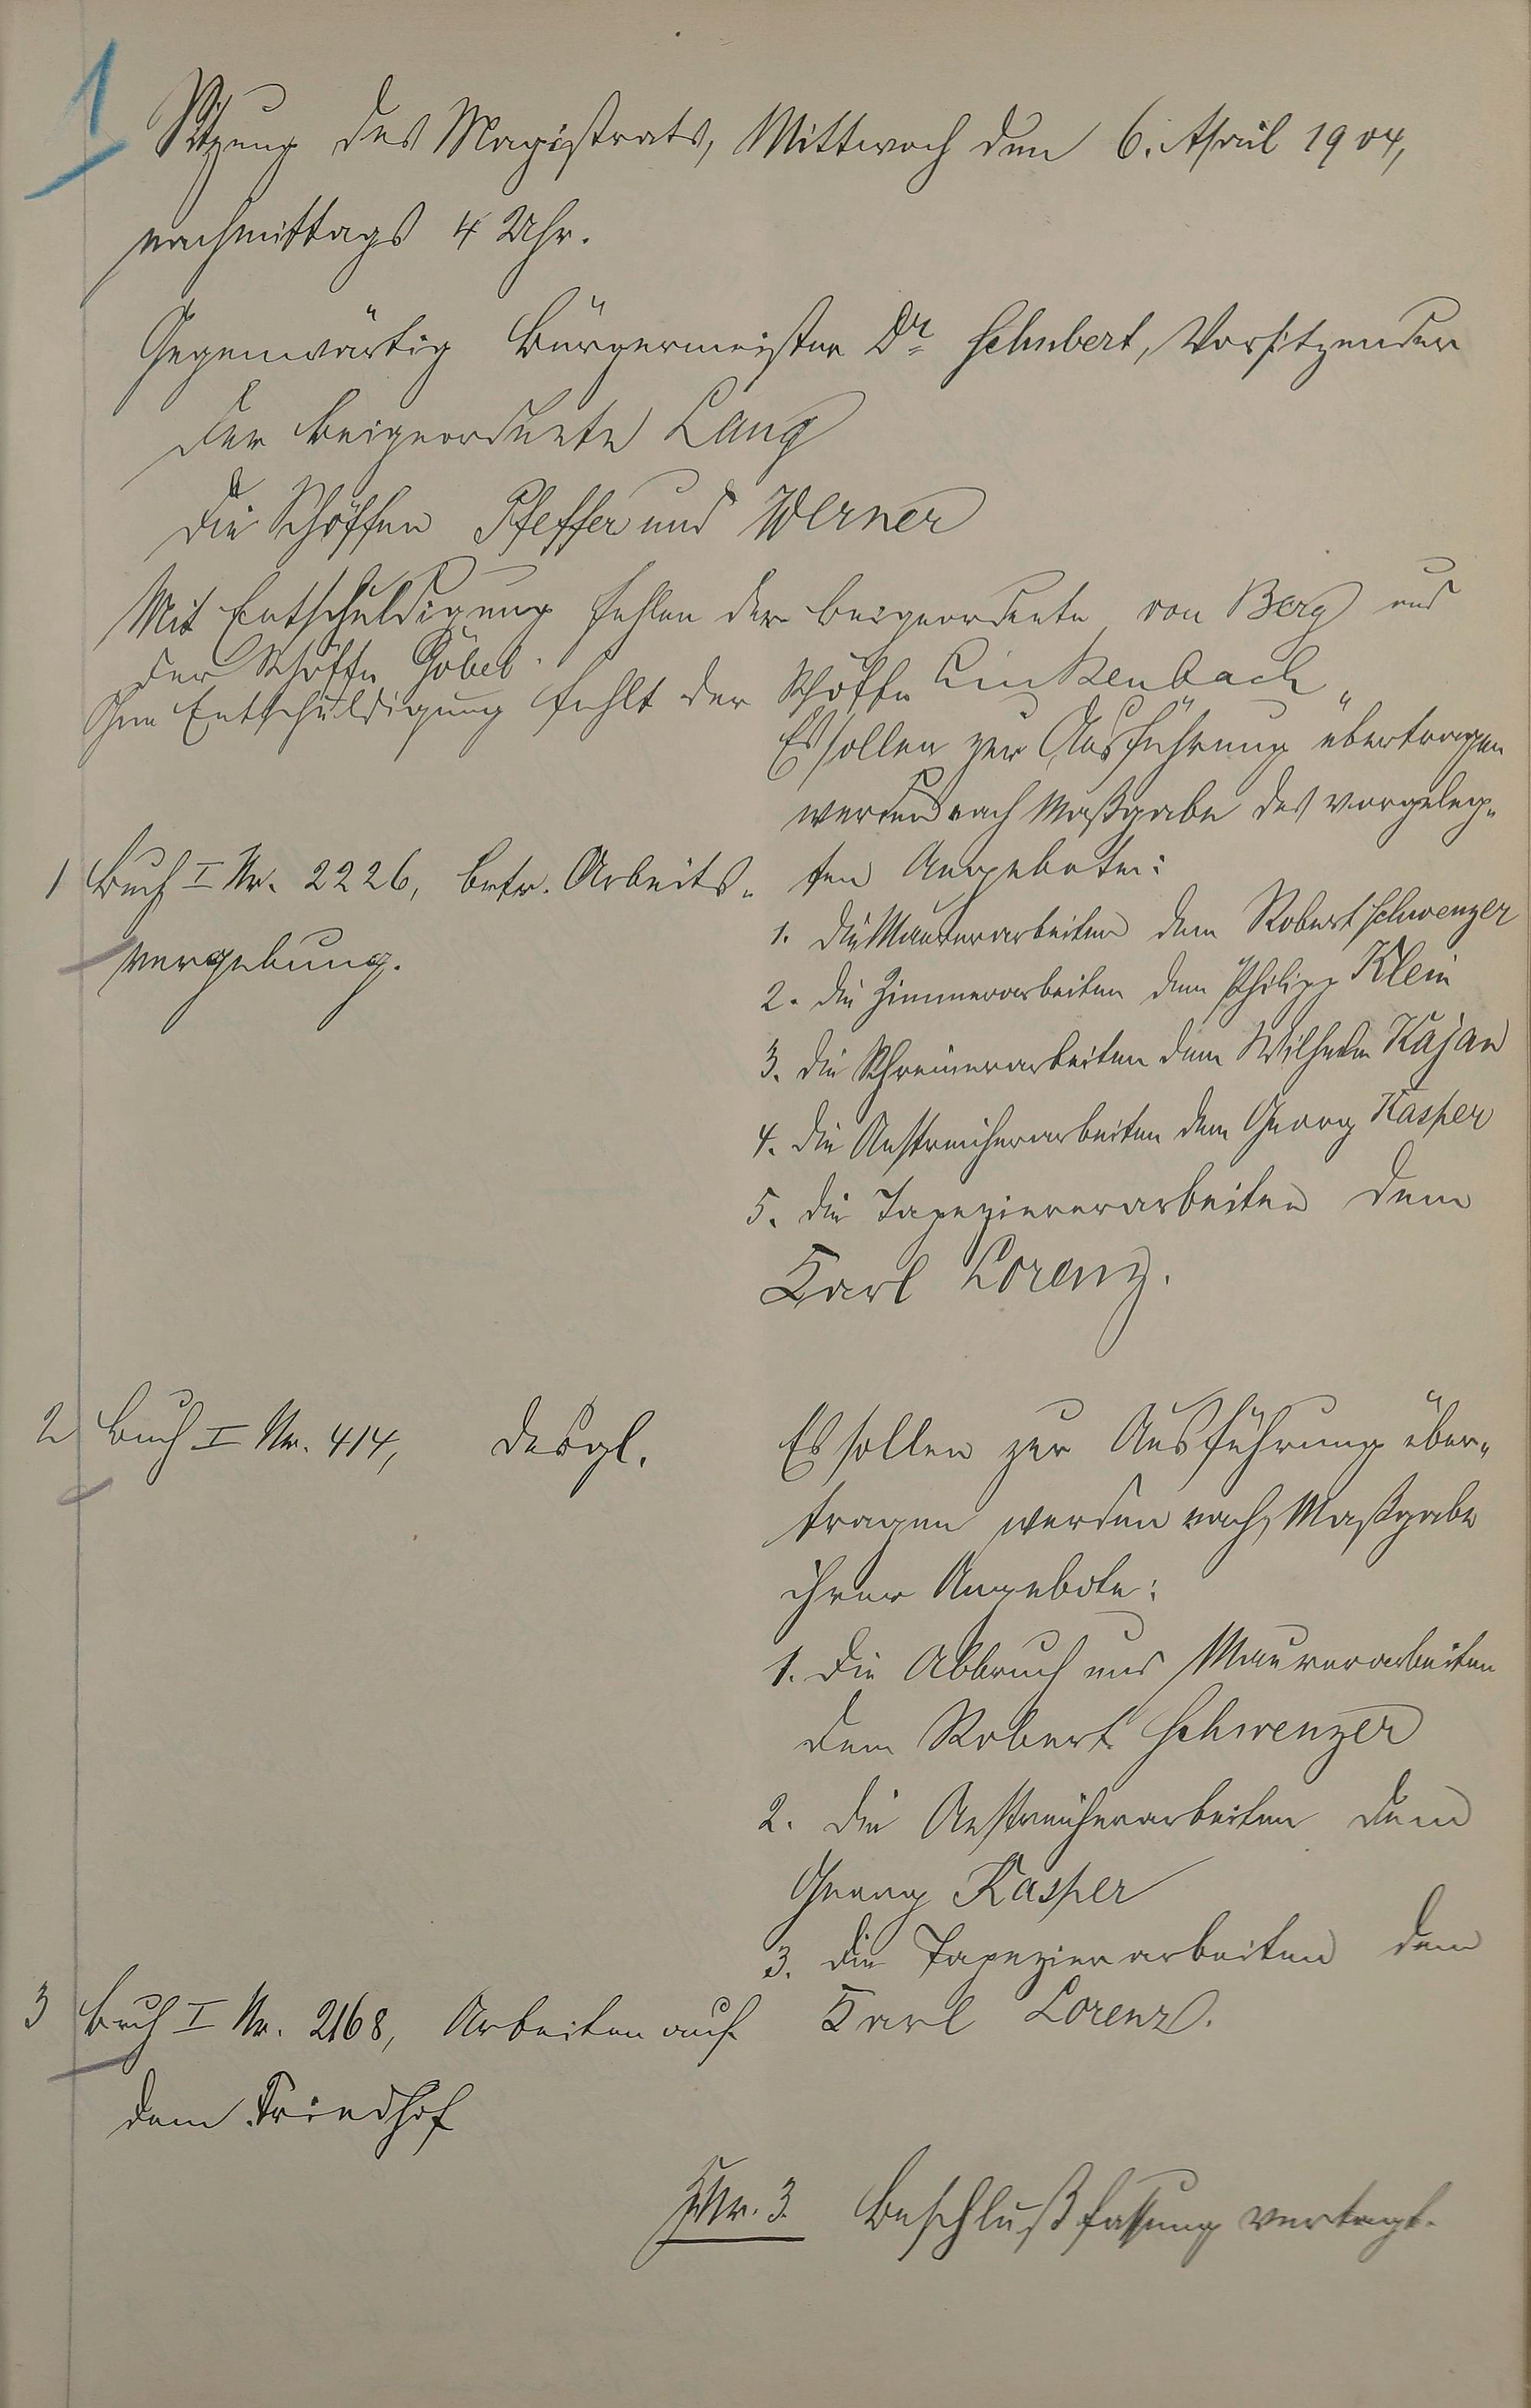 1
Sitzung des Magistrats, Mittwoch den 6. April 1904,
nachmittags 4 Uhr.
Gegenwärtig Bürgermeister Dr Schubert, Vorsitzender
der Beigeordnete Lang
die Schöffen Pfeffer und Werner
Mit Entschuldigung fehlen der Beigeordnete von Berg und
der Schöffe Göbel.
Ohne Entschuldigung fehlt der Schöffe Linkenbach
1 Buch I Nr. 2226, betr. Arbeits-
vergebung.
Es sollen zur Ausführung übertragen
werden nach Maßgabe des vorgeleg-
ten Angebote:
1. die Maurerarbeiten dem Robert Schwenzer
2. die Zimmerarbeiten dem Philipp Klein
3. die Schreinerarbeiten dem Wilhelm Kajan
4. die Anstreicherarbeiten dem Georg Kasper
5. die Tapeziererarbeiten dem
Karl Lorenz.
2 Buch I Nr. 414, desgl.
Es sollen zur Ausführung über-
tragen werden nach Maßgabe
ihrer Angebote:
1. die Abbruch und Maurerarbeiten
dem Robert Schwenzer
2. die Anstreicherarbeiten dem
Georg Kasper
3. die Tapezierarbeiten dem
Karl Lorenz.
3 Buch I Nr. 2168, Arbeiten auf
dem Friedhof
Z. Nr. 3. Beschlußfassung vertagt.